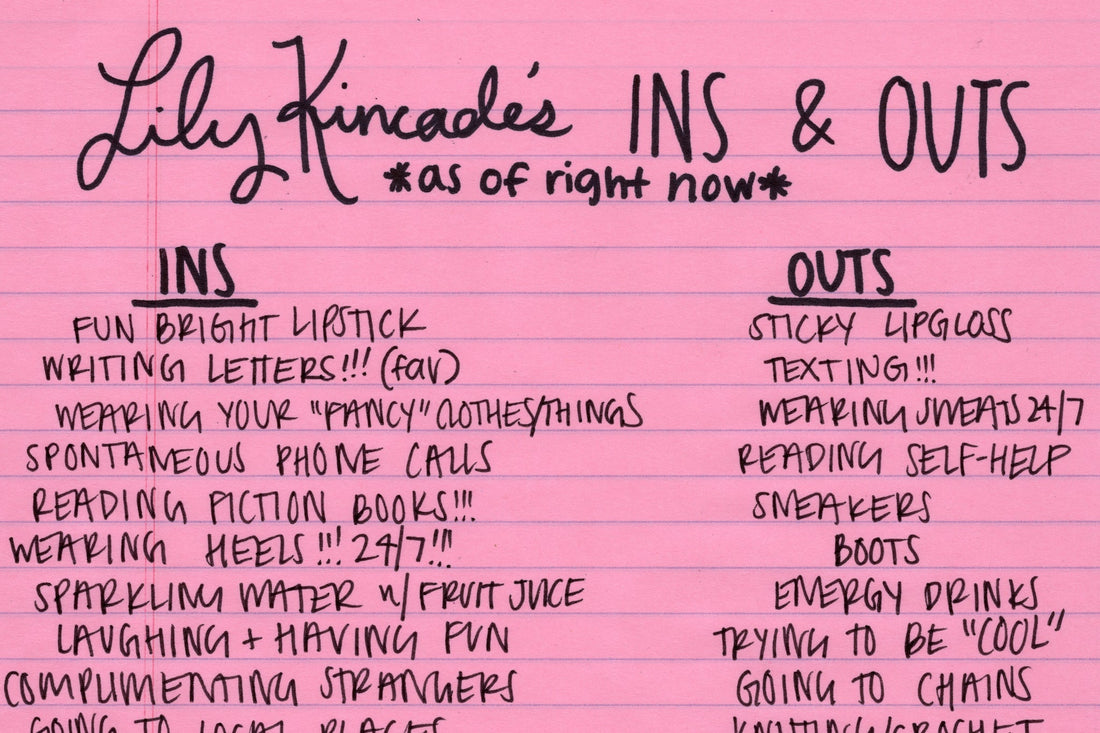 Lily Kincade's INS & OUTS
*as of right now*
INS
FUN BRIGHT LIPSTICK
WRITING LETTERS!!! (fav)
WEARING YOUR "FANCY" CLOTHES/THINGS
SPONTANEOUS PHONE CALLS
READING FICTION BOOKS!!!
WEARING HEELS!!! 24/7!!!
SPARKLING WATER w/ FRUIT JUICE
LAUGHING + HAVING FUN
COMPLIMENTING STRANGERS
GOING TO LOCAL PLACES
OUTS
STICKY LIPGLOSS
TEXTING!!!
WEARING SWEATS 24/7
READING SELF-HELP
SNEAKERS
BOOTS
ENERGY DRINKS
TRYING TO BE "COOL"
GOING TO CHAINS
KNITTING/CROCHET